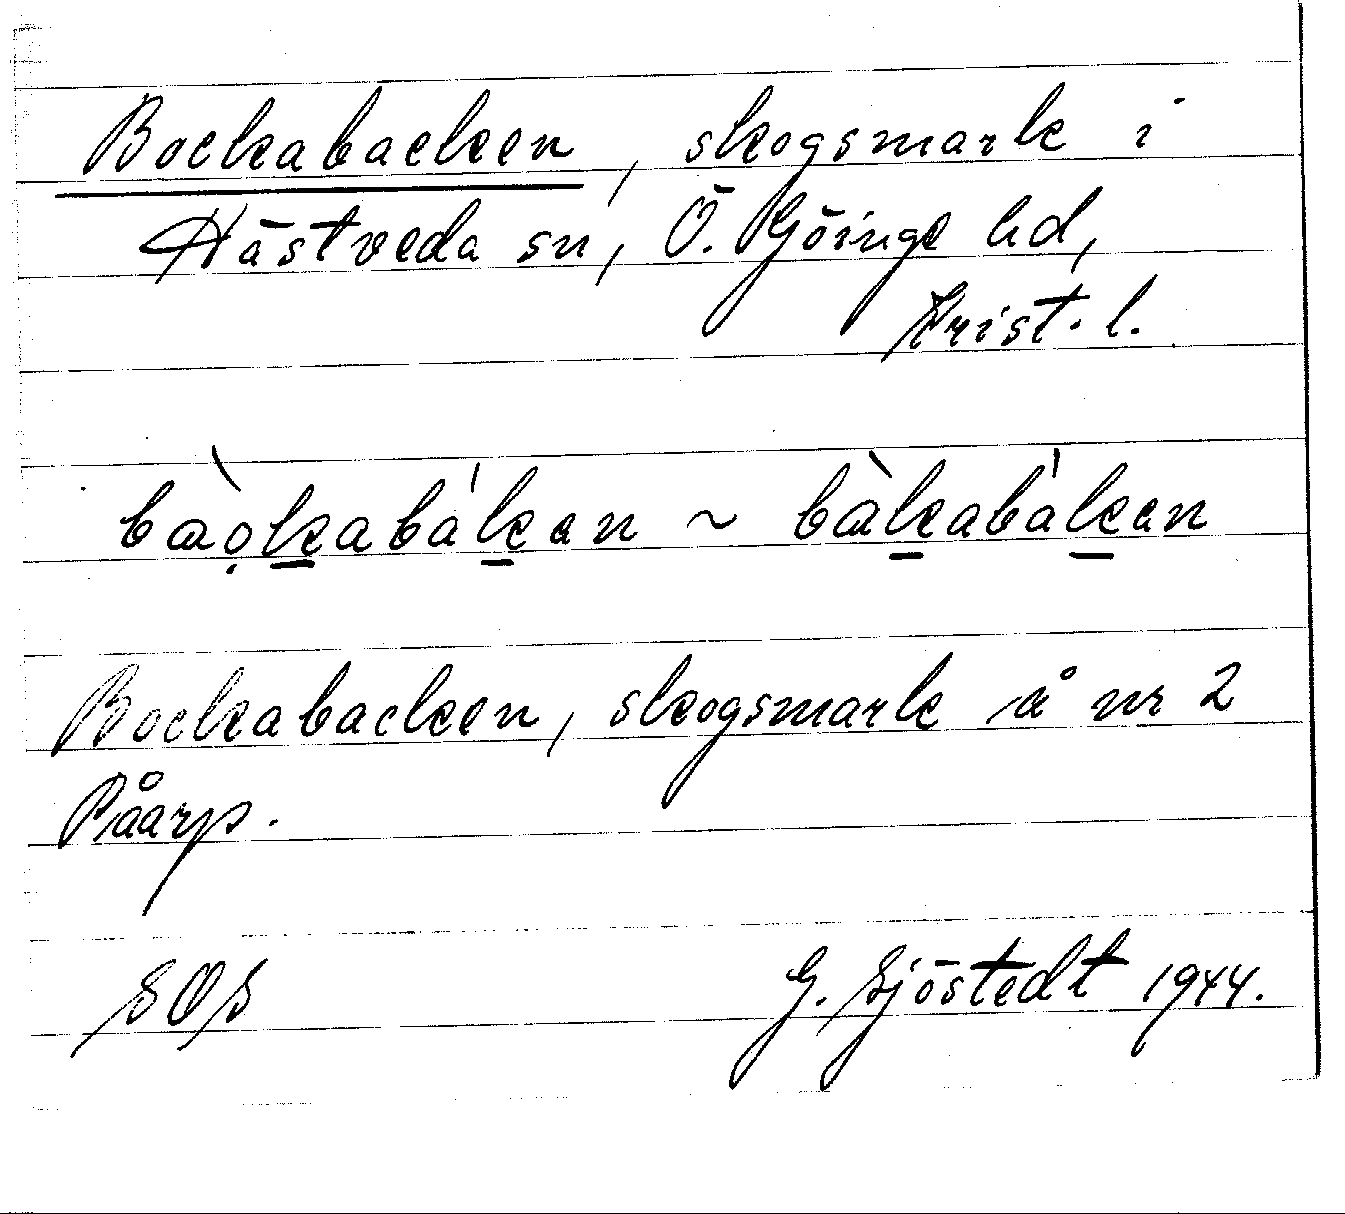 Bockabacken, skogsmark i
Hästveda sn, Ö. Göinge hd,
Krist. l.
bæ̀ọk̲abák̲en ~ bæ̀k̲abàk̲en
Bockabacken, skogsmark å nr 2
Påarp.
SOS G. Sjöstedt 1944.